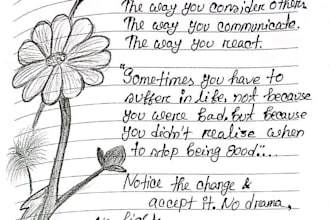 The way you consider others
The way you communicate.
The way you react.
"Sometimes you have to
suffer in life, not because
you were bad, but because
you didn't realise when
to stop being good"....
Notice the change &
accept it. No drama,